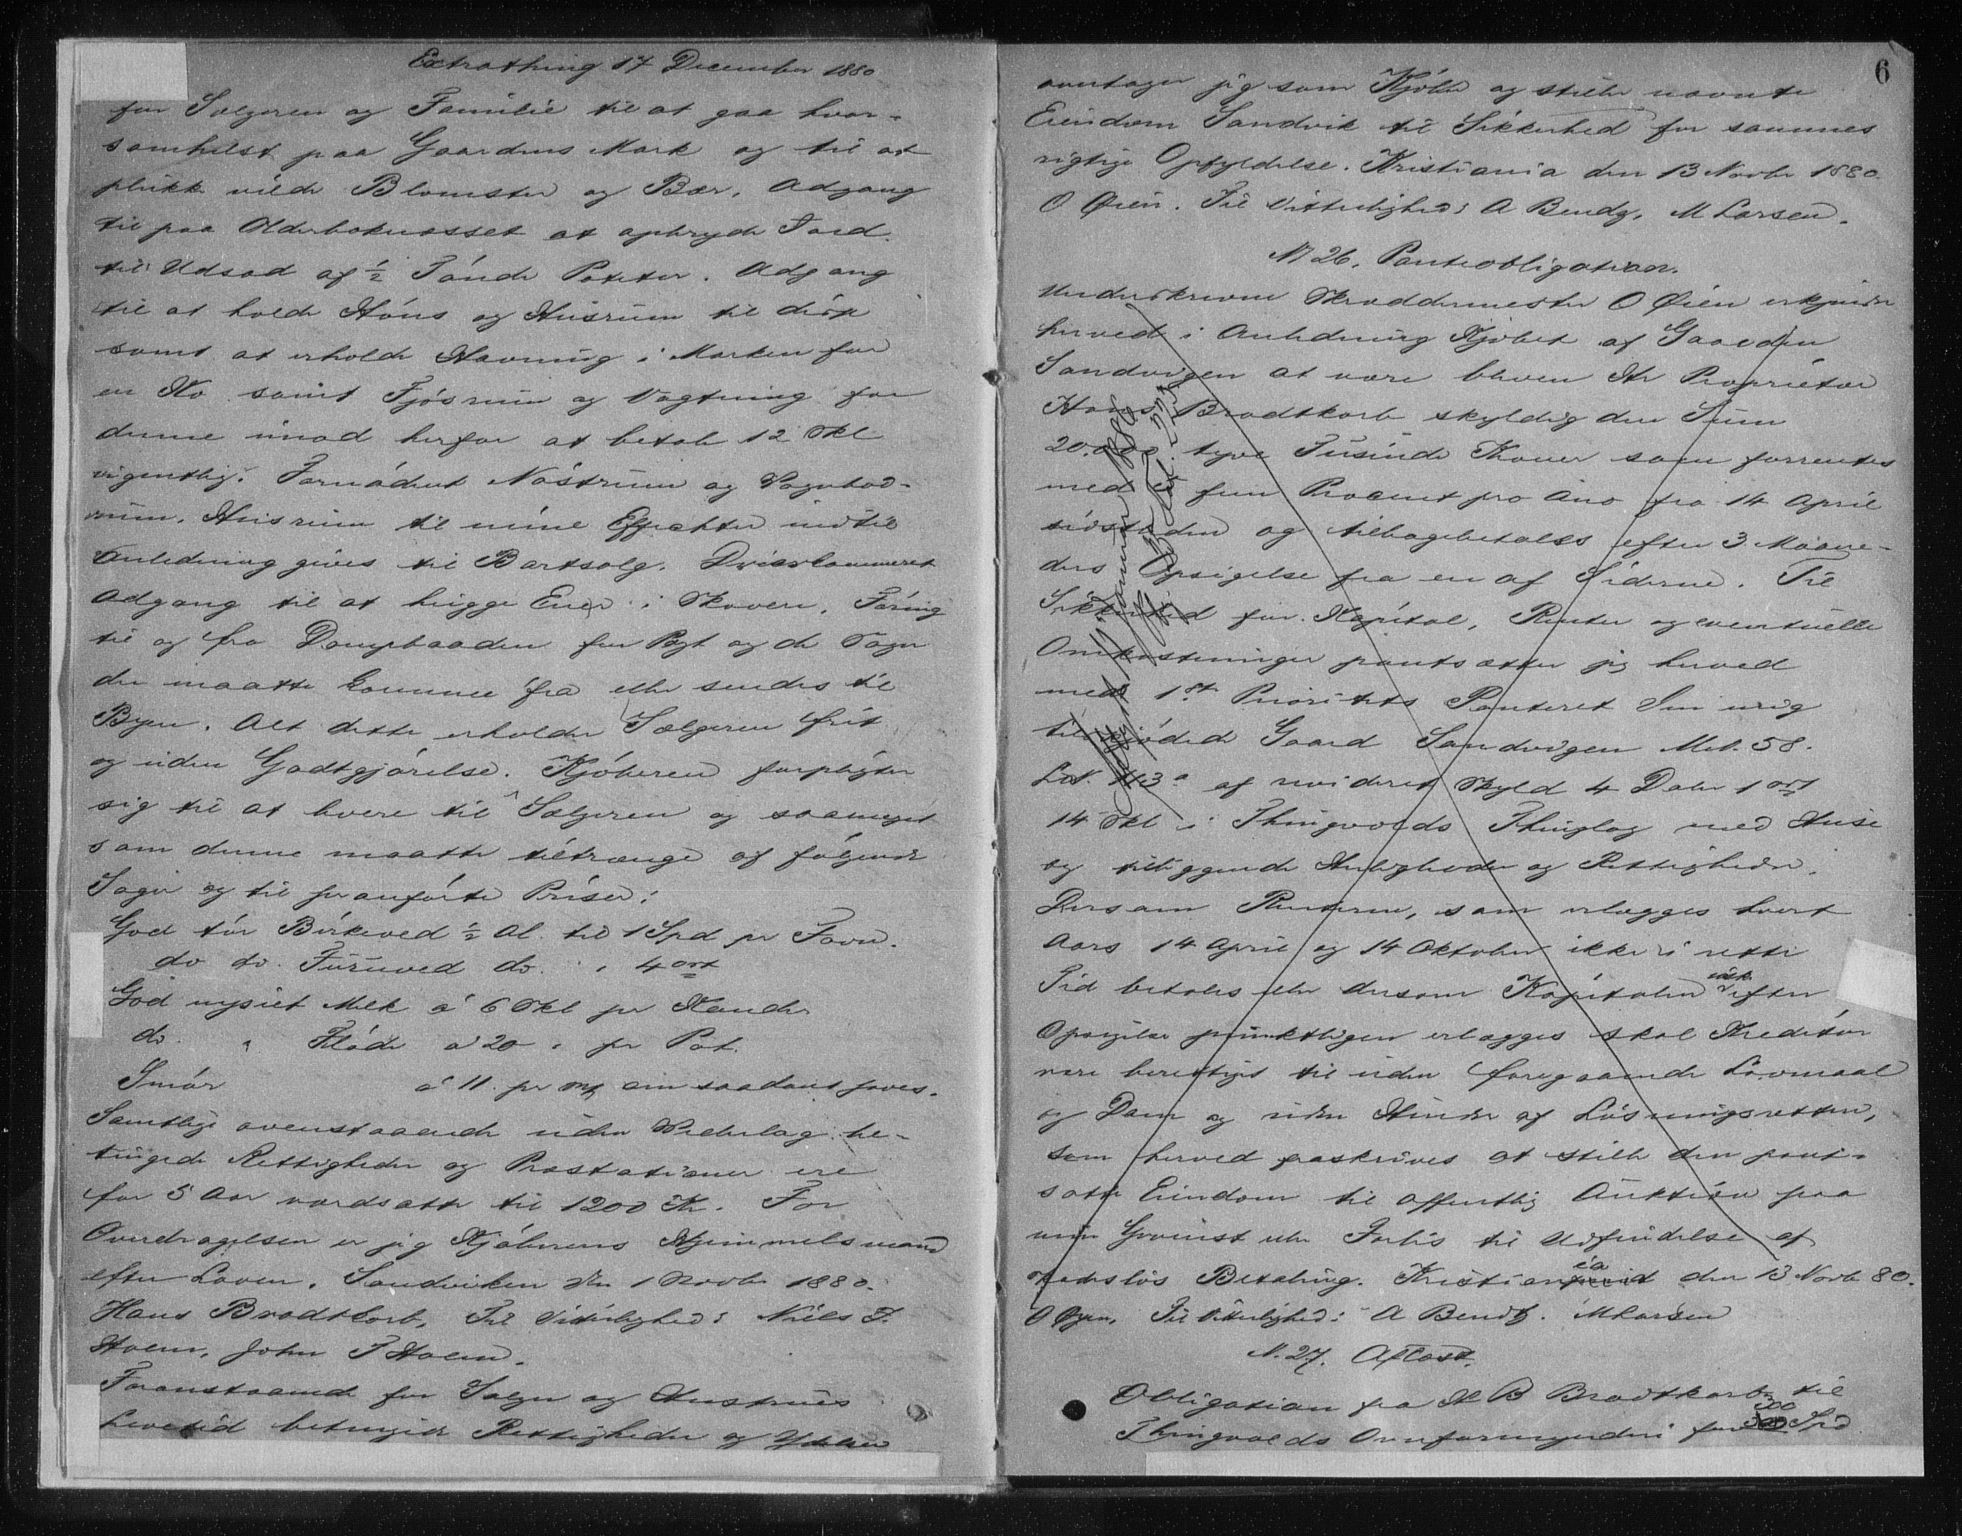 Extrathing 17 December 1880
for Sælgeren og Familie til at gaa hvor-
somhelst paa Gaardens Mark og til at
plukke vilde Blomster og Bær. Adgang
til paa at opbryde Jord
til Udsæd af ½ Tønde Poteter. Adgang
til at holde Høns og Husrum til disse
samt at erholde Havning i Marken for
en Ko samt Fjøsrum og Vogtning for
denne imod herfor at betale 12 Skl
ugentlig. Fornødent Nøstrum og Vognbod-
rum. Husrum til mine Effekter indtil
Anledning gives til Bortsalg.
Adgang til at hugge Ener i Skoven. Føring
til og fra Dampbaaden for Byt og de Sager
der maatte komme fra eller sendes til
Byen. Alt dette erholder Sælgeren frit
og uden Godtgjørelse. Kjøberen forpligter
sig til at levere til Sælgeren og saameget
som denne maatte tiltrænge af følgende
Sager og til foranførte Priser:
God tør Birkeved ½ Al. til 1 Spd pr Favn.
do do. Furuved do. " 4 ort
God nysiet Melk á 6 Skl pr Kande
do. " Fløde á 20 " pr Pot.
Smør á 11. pr Mk om saadant haves.
Samtlige ovenstaaende uden Vederlag be-
tingede Rettigheder og Præstationer ere
for 5 Aar værdsatte til 1200 Kr. For
Overdragelsen er jeg Kjøberens Hjemmelsmand
efter Loven. Sandviken den 1 Novbr 1880.
Hans Brodtkorb. Til Vitterlighed: Niels T.
Holm. John T Holm.
Foranstaaende for Sælger og Hustrues
Levetid betingede Rettigheder og Ydelser
6
overtager jeg som Kjøber og stiller nævnte
Eiendom Sandvik til Sikkerhed for sammes
rigtige Opfyldelse. Kristiania den 13 Novbr 1880.
O Øien. Til Vitterlighed: A Bendz. M Larsen.
N 26. Panteobligation.
Underskrevne Skræddermester O Øien erkjender
herved i Anledning Kjøbet af Gaarden
Sandvigen at være bleven Hr Proprietær
Hans Brodtkorb skyldig den Sum
20.000 tyve Tusinde Kroner som forrentes
med 5 fem Procent pro Ano fra 14 April
sidstleden og tilbagebetales efter 3 Maane-
ders Opsigelse fra en af Siderne. Til
Sikkerhed for Kapital, Renter og eventuelle
Omkostninger pantsætter jeg herved
med 1ste Prioritets Panteret den mig
tilskjødede Gaard Sandvigen Mat. 58.
LN. 113a af revideret Skyld 4 Daler 1 ort
14 Skl i Thingvolds Thinglag med Huse
og tilliggende Herligheder og Rettigheder.
Dersom Renterne, som erlægges hvert
Aars 14 April og 14 Oktober ikke i rette
Tid betales eller dersom Kapitalen ikke efter
Opsigelse punktligen erlægges skal Kreditor
være berettiget til uden foregaaende Lovmaal
og Dom og uden Hinder af Løsningsretten,
som herved fraskrives at stille den pant-
satte Eiendom til offentlig Auktion paa
min Gevinst eller Forlis til Udfindelse af
skadesløs Betaling. Kristiania den 13 Novb 80.
O Øyen. Til Vitterlighed: A Bendz. M Larsen
N. 27. Aflæst.
Obligation fra H B Brodtkorb til
Thingvolds Overformynderi for 300 Spd
Aflyst Januar